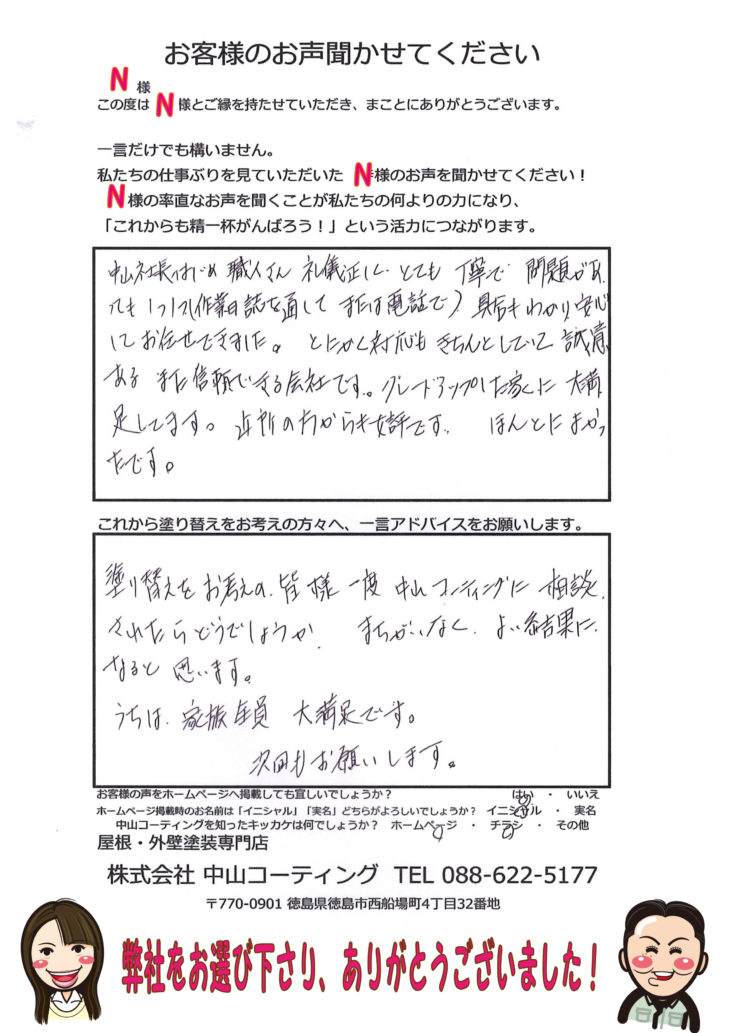 お客様のお声聞かせてください
N 様
この度は N 様とご縁を持たせていただき、まことにありがとうございます。
一言だけでも構いません。
私たちの仕事ぶりを見ていただいた N 様のお声を聞かせてください！
N 様の率直なお声を聞くことが私たちの何よりの力になり、
「これからも精一杯がんばろう！」という活力につながります。
中山社長はじめ 職人さん 礼儀正しく とても 丁寧で 問題があ
っても 1つ1つ(作業日誌を通して または電話で) わかり 安心
して お任せできました。 とにかく対応も きちんとしていて 誠意
ある また 信頼できる会社です。グレードアップした家に 大満
足してます。 近所の方からも好評です。 ほんとによかっ
たです。
これから塗り替えをお考えの方々へ、一言アドバイスをお願いします。
塗り替えを お考えの、皆様 一度 中山コーティングに 相談
されたらどうでしょうか。 まちがいなく、よい結果に
なると 思います。
うちは、家族全員 大満足です。
次回もお願いします。
お客様の声をホームページへ掲載しても宜しいでしょうか？ はい ・ いいえ
ホームページ掲載時のお名前は「イニシャル」「実名」どちらがよろしいでしょうか？ イニシャル ・ 実名
中山コーティングを知ったキッカケは何でしょうか？ ホームページ ・ チラシ ・ その他
屋根・外壁塗装専門店
株式会社 中山コーティング TEL 088-622-5177
〒770-0901 徳島県徳島市西船場町4丁目32番地
弊社をお選び下さり、ありがとうございました！